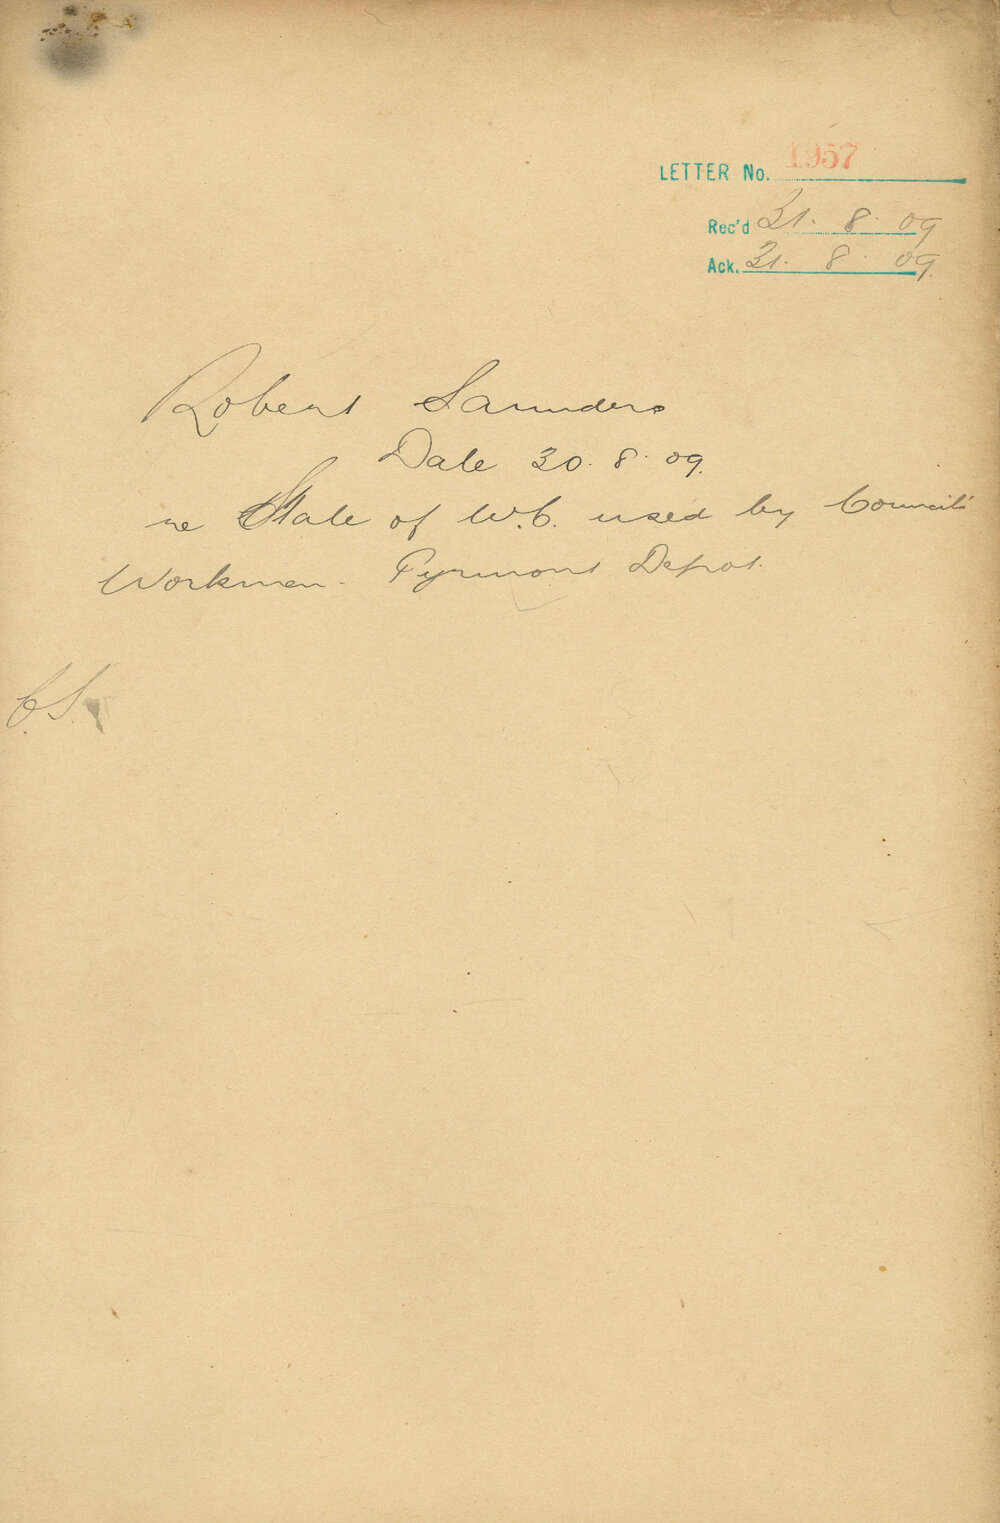 LETTER No. 1957
Rec'd 31. 8. 09
Ack. 31. 8. 09.
Robert Saunders
Date 30. 8. 09.
re State of W.C. used by Council's
Workmen. Pyrmont Depot.
C.S.